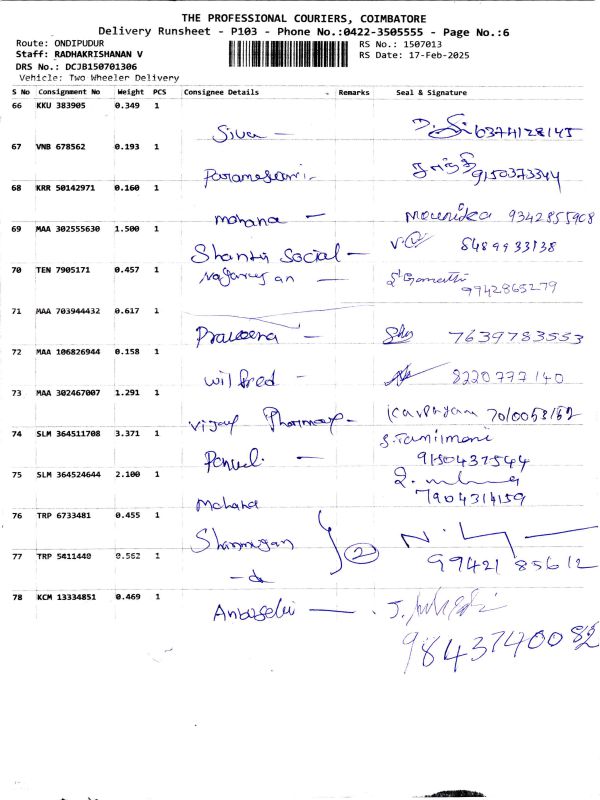 THE PROFESSIONAL COURIERS, COIMBATORE
Delivery Runsheet - P103 - Phone No.:0422-3505555 - Page No.:6
Route: ONDIPUDUR
RS No.: 1507013
Staff: RADHAKRISHANAN V
RS Date: 17-Feb-2025
DRS No.: DCJB150701306
Vehicle: Two Wheeler Delivery
S No Consignment No Weight PCS Consignee Details Remarks Seal & Signature
66 KKU 383905 0.349 1
Siva — 6374128145
67 VNB 678562 0.193 1
Parameswari - 9150373344
68 KRR 50142971 0.160 1
mohana — Mounika 9342855908
69 MAA 302555630 1.500 1
Shanthi Social — 8489933138
70 TEN 7905171 0.457 1
Nagarajan — 9942865279
71 MAA 703944432 0.617 1
Praveena — 7639783553
72 MAA 106826944 0.158 1
Wilfred - 8220777140
73 MAA 302467007 1.291 1
Vijay Pharmacy - 7010053162
74 SLM 364511708 3.371 1
S.Tamilmani
9150437544
75 SLM 364524644 2.100 1
Mohana 7904314159
76 TRP 6733481 0.455 1
Shanmugan
2
77 TRP 5411440 0.562 1
- do
99421 85612
78 KCM 13334851 0.469 1
Anbuselvi —
9843740082